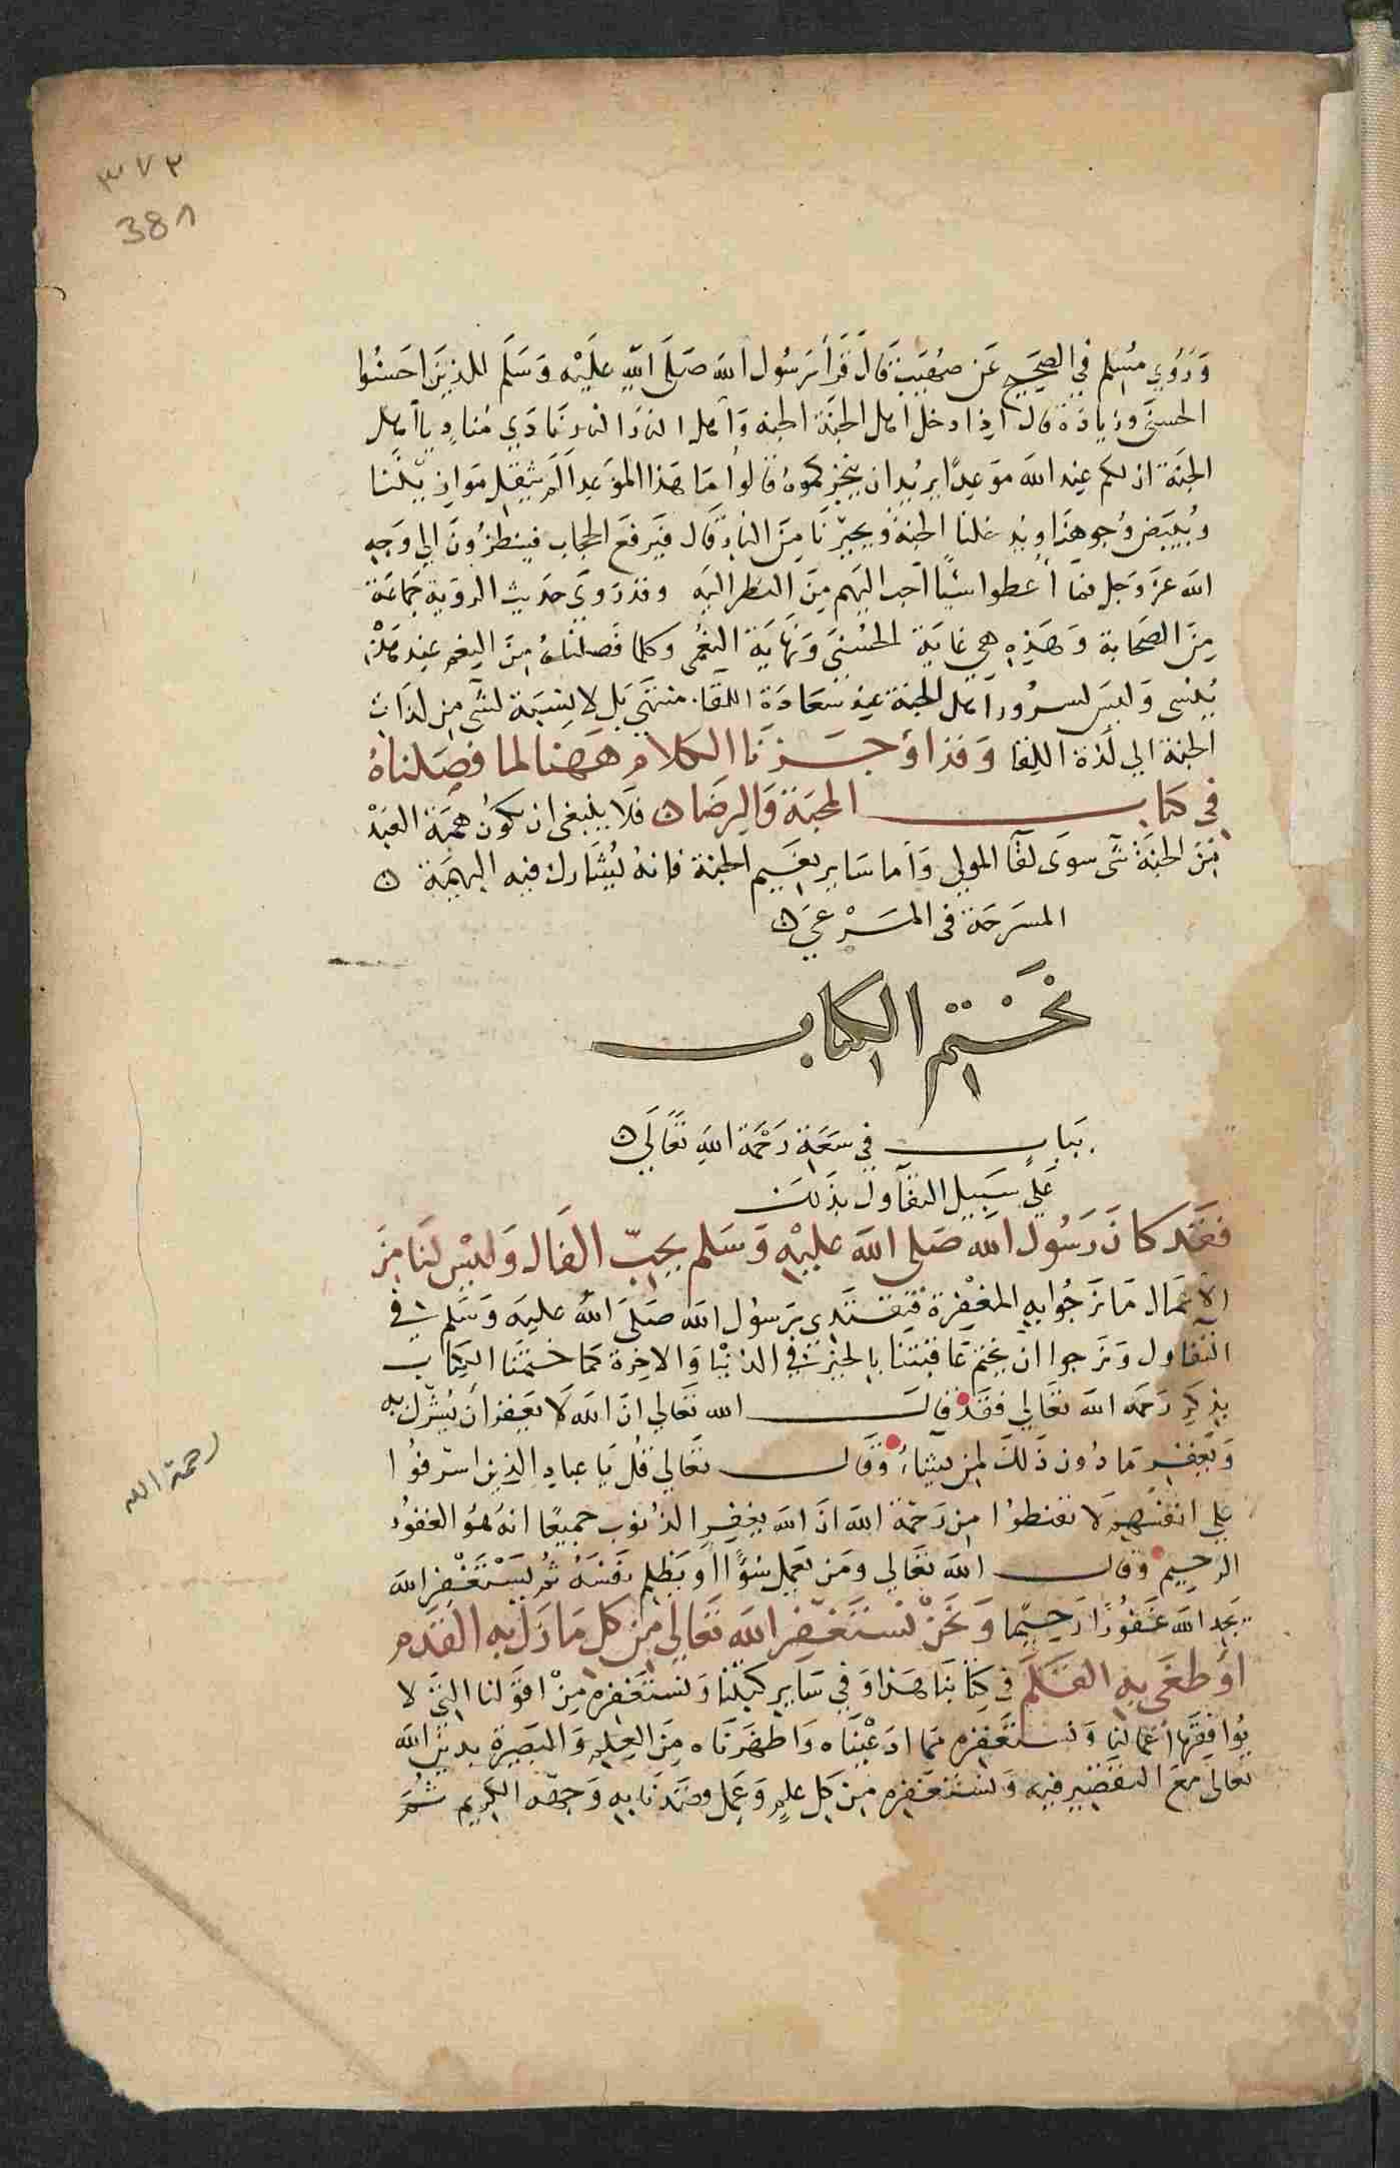 ٣٧٢
381
وَرَوَي مُسْلم في الصَحِيح عَن صُهَيب قَالَ قَرَأ رَسُول الله صَلَّى اللّه عَلَيْه وَسَلَم للذين احسَنُوا
الحسنَى وزيادَة قال اذا دخل اهل الجَنَة الجنه وَاهل النار النار نَادَي مُنادٍ يا اهل
الجنَة ان لكم عند الله مَوعدًا يريُد ان ينجزكموهُ قالوا مَا هَذا الموَعد الَم يثقل مَوازيننَا
ويُبيَض وُجوهنَا ويُدخلنا الجنَة ويجيرنَا مِنَ النار قَال فيَرفعَ الحجَاب فينظرُونَ الي وَجه
الله عزَ وَجل فمَا أُعطوا شيًا احب اليَهم مِنَ النظر اليَه وقد رَوَي حَديث الرؤية جَماعَة
مِنَ الصَحابة وَهَذِه هي غايَة الحُسنَى وَنَهايَة النعُمى وكلما فَصلنَاهُ مِنَ النِعَم عند هَذِه
يُنسى وَليسَ لسرُور اَهل الجنَة عند سَعَادَة اللقَا منتهَي بَل لا نِسَبَة لشَى من لذَات
الجنة الي لَذة اللِقا وَقد اوْجَـزنَا الكلامَ هَهنا لما فصَلناهُ
في كتاب المحبَة وَالرضَا ں فلَا ينبغى ان تكونُ همَة العَبد
مِنَ الجنَة شَى سوَى لقآ المولي وَأما سَاير نعَيم الجنة فانهُ يُشَارك فيه البهيمَة ں
المسَرحَة في المَرْعيَ ں
نخَتم الكتاب
بَباب في سَعَة رَحْمَة اللهِ تَعَالَي ں
عَلي سَبيل التفآول بذَلكَ
فقَد كانَ رَسُول الله صَلى الله عليْه وَسَلم يحبّ الفَال وَليْس لنَا مِنَ
الاعمَال مَا نَرجُوا به المغفِرة فَنقتَدي برَسوُل الله صَلىَ اللهُ عليَه وَسَلم في
التفاول وَنَرجوا ان يختمَ عَاقبتنَا بالخيَر في الدنيْا وَالاخِرة كمَا ختمَنا الكتَاب
بذكِر رَحمَه الله تعَالي فقَد قالَ الله تعَالي انَ الله لَا يغَفر أن يُشرك به
وَيغَفر مَا دُون ذَلكَ لمن يشَاءُ وَقَال تعَالي قُل يَا عبادِ الذين اسرَفوُا
عَلي انفسَهم لا تقنطوُا من رَحمَة الله انَ الله يغفر الذنوب جميعًا انهُ هوُ الغفوُر
الرحيم وَقال الله تعَالي ومَن يَعَمل سُوءًا أو يَظلم نفَسَهُ ثُم يَسْتَغفر الله
يَجد الله غَفوُرًا رَحيمًا وَنحَنُ نَستَغفر الله تَعَالي مِن كل مَا زَل به القَدَم
اوَ طغَى به القَلَم في كتابنَا هَذا وَفي سَاير كتبنا وَنستغَفره مِنْ اقوَلنا التيَ لا
يُوافقَها أعَمالنا وَنستغَفره مما ادَعَيْنَاه وَاظهَرنَاه مِنَ العِلم وَالبَصيرة بديَن الله
تعالى مَع التقَصير فيه وَنستغَفره مِن كل علمٍ وَعَمل قصَدنَا به وَجهَه الكريم ثُمَ
رحمة الله